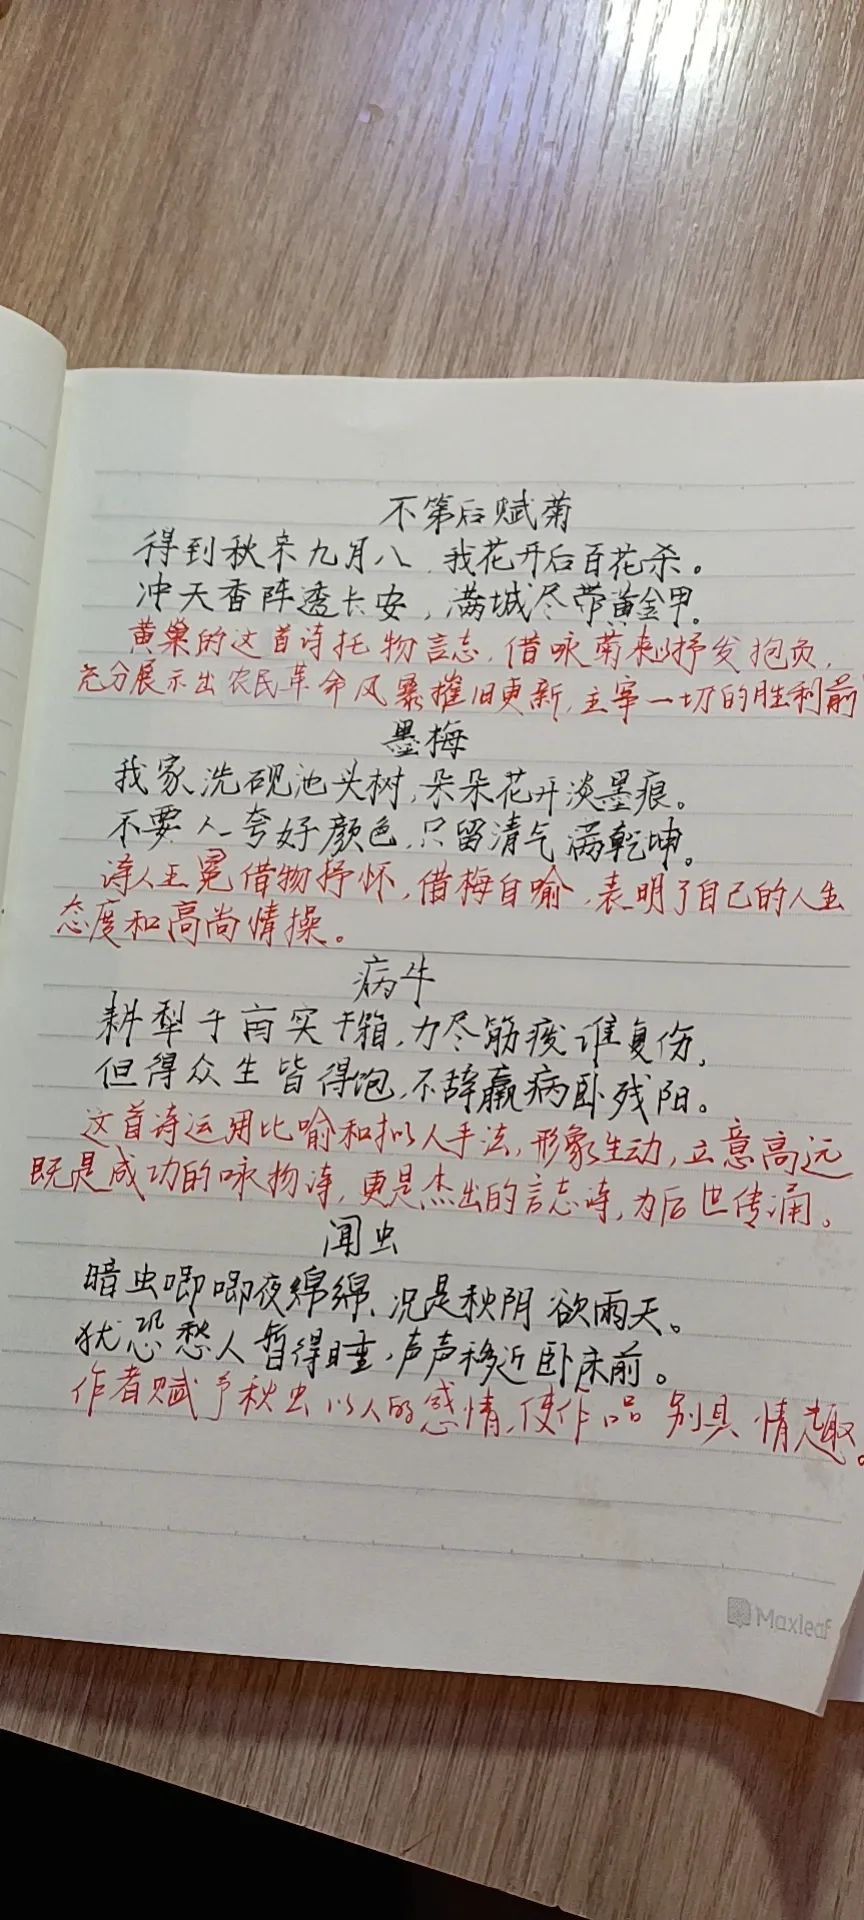 不第后赋菊
得到秋来九月八，我花开后百花杀。
冲天香阵透长安，满城尽带黄金甲。
黄巢的这首诗托物言志，借咏菊来抒发抱负，
充分展示出农民革命风暴摧旧更新，主宰一切的胜利前
墨梅
我家洗砚池头树，朵朵花开淡墨痕。
不要人夸好颜色，只留清气满乾坤。
诗人王冕借物抒怀，借梅自喻，表明了自己的人生
态度和高尚情操。
病牛
耕犁千亩实千箱，力尽筋疲谁复伤，
但得众生皆得饱，不辞羸病卧残阳。
这首诗运用比喻和拟人手法，形象生动，立意高远
既是成功的咏物诗，更是杰出的言志诗，为后世传诵。
闻虫
暗虫唧唧夜绵绵、况是秋阴欲雨天。
犹恐愁人暂得睡，声声移近卧床前。
作者赋予秋虫以人的感情，使作品别具情趣。
Maxleaf